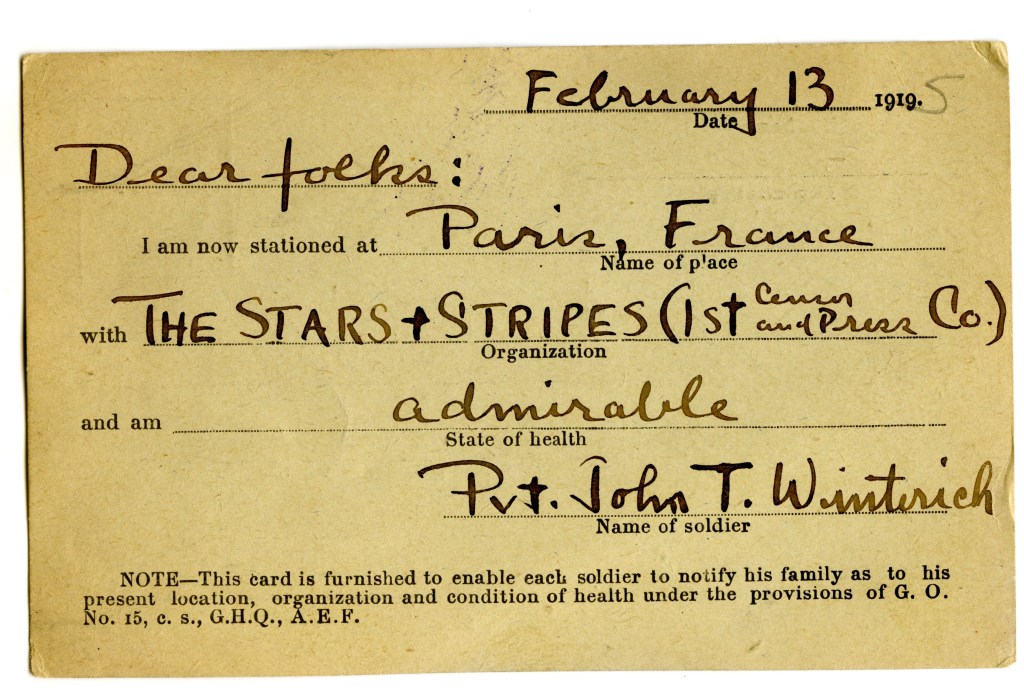 February 13 1919. 5
Date
Dear folks:
I am now stationed at Paris, France
Name of place
with THE STARS + STRIPES (1st Censor and Press Co.)
Organization
and am admirable
State of health
Pvt. John T. Winterich
Name of soldier
NOTE—This card is furnished to enable each soldier to notify his family as to his
present location, organization and condition of health under the provisions of G. O.
No. 15, c. s., G.H.Q., A.E.F.